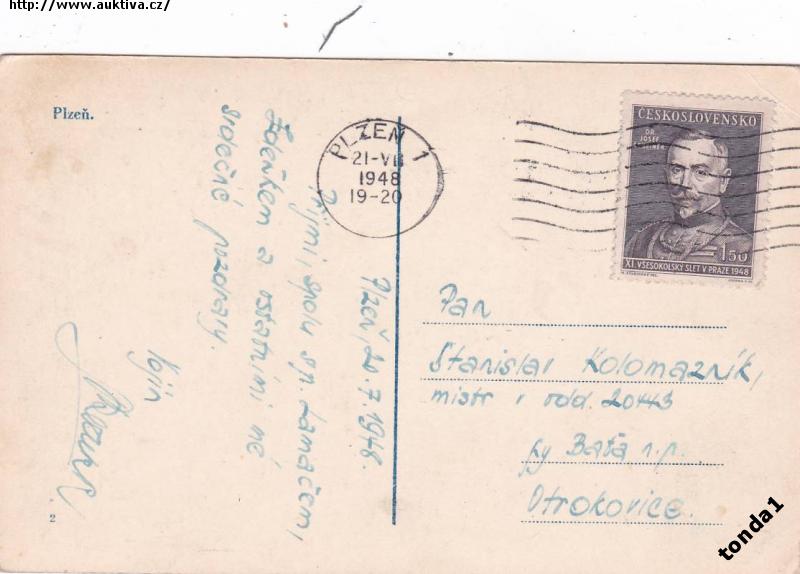 http://www.auktiva.cz/
Plzeň.
PLZEŇ 1
21-VII
1948
19-20
ČESKOSLOVENSKO
DR.
JOSEF
1·50
XI. VŠESOKOLSKÝ SLET V PRAZE 1948
Plzeň, 20. 7. 1948.
spolu s p. Lamačem,
Zdeňkem a ostatními mé
srdečné pozdravy.
Vojín
Pan
Stanislav Kolomazník,
mistr v odd. 20443
fy Baťa n.p.
Otrokovice.
2
tonda1